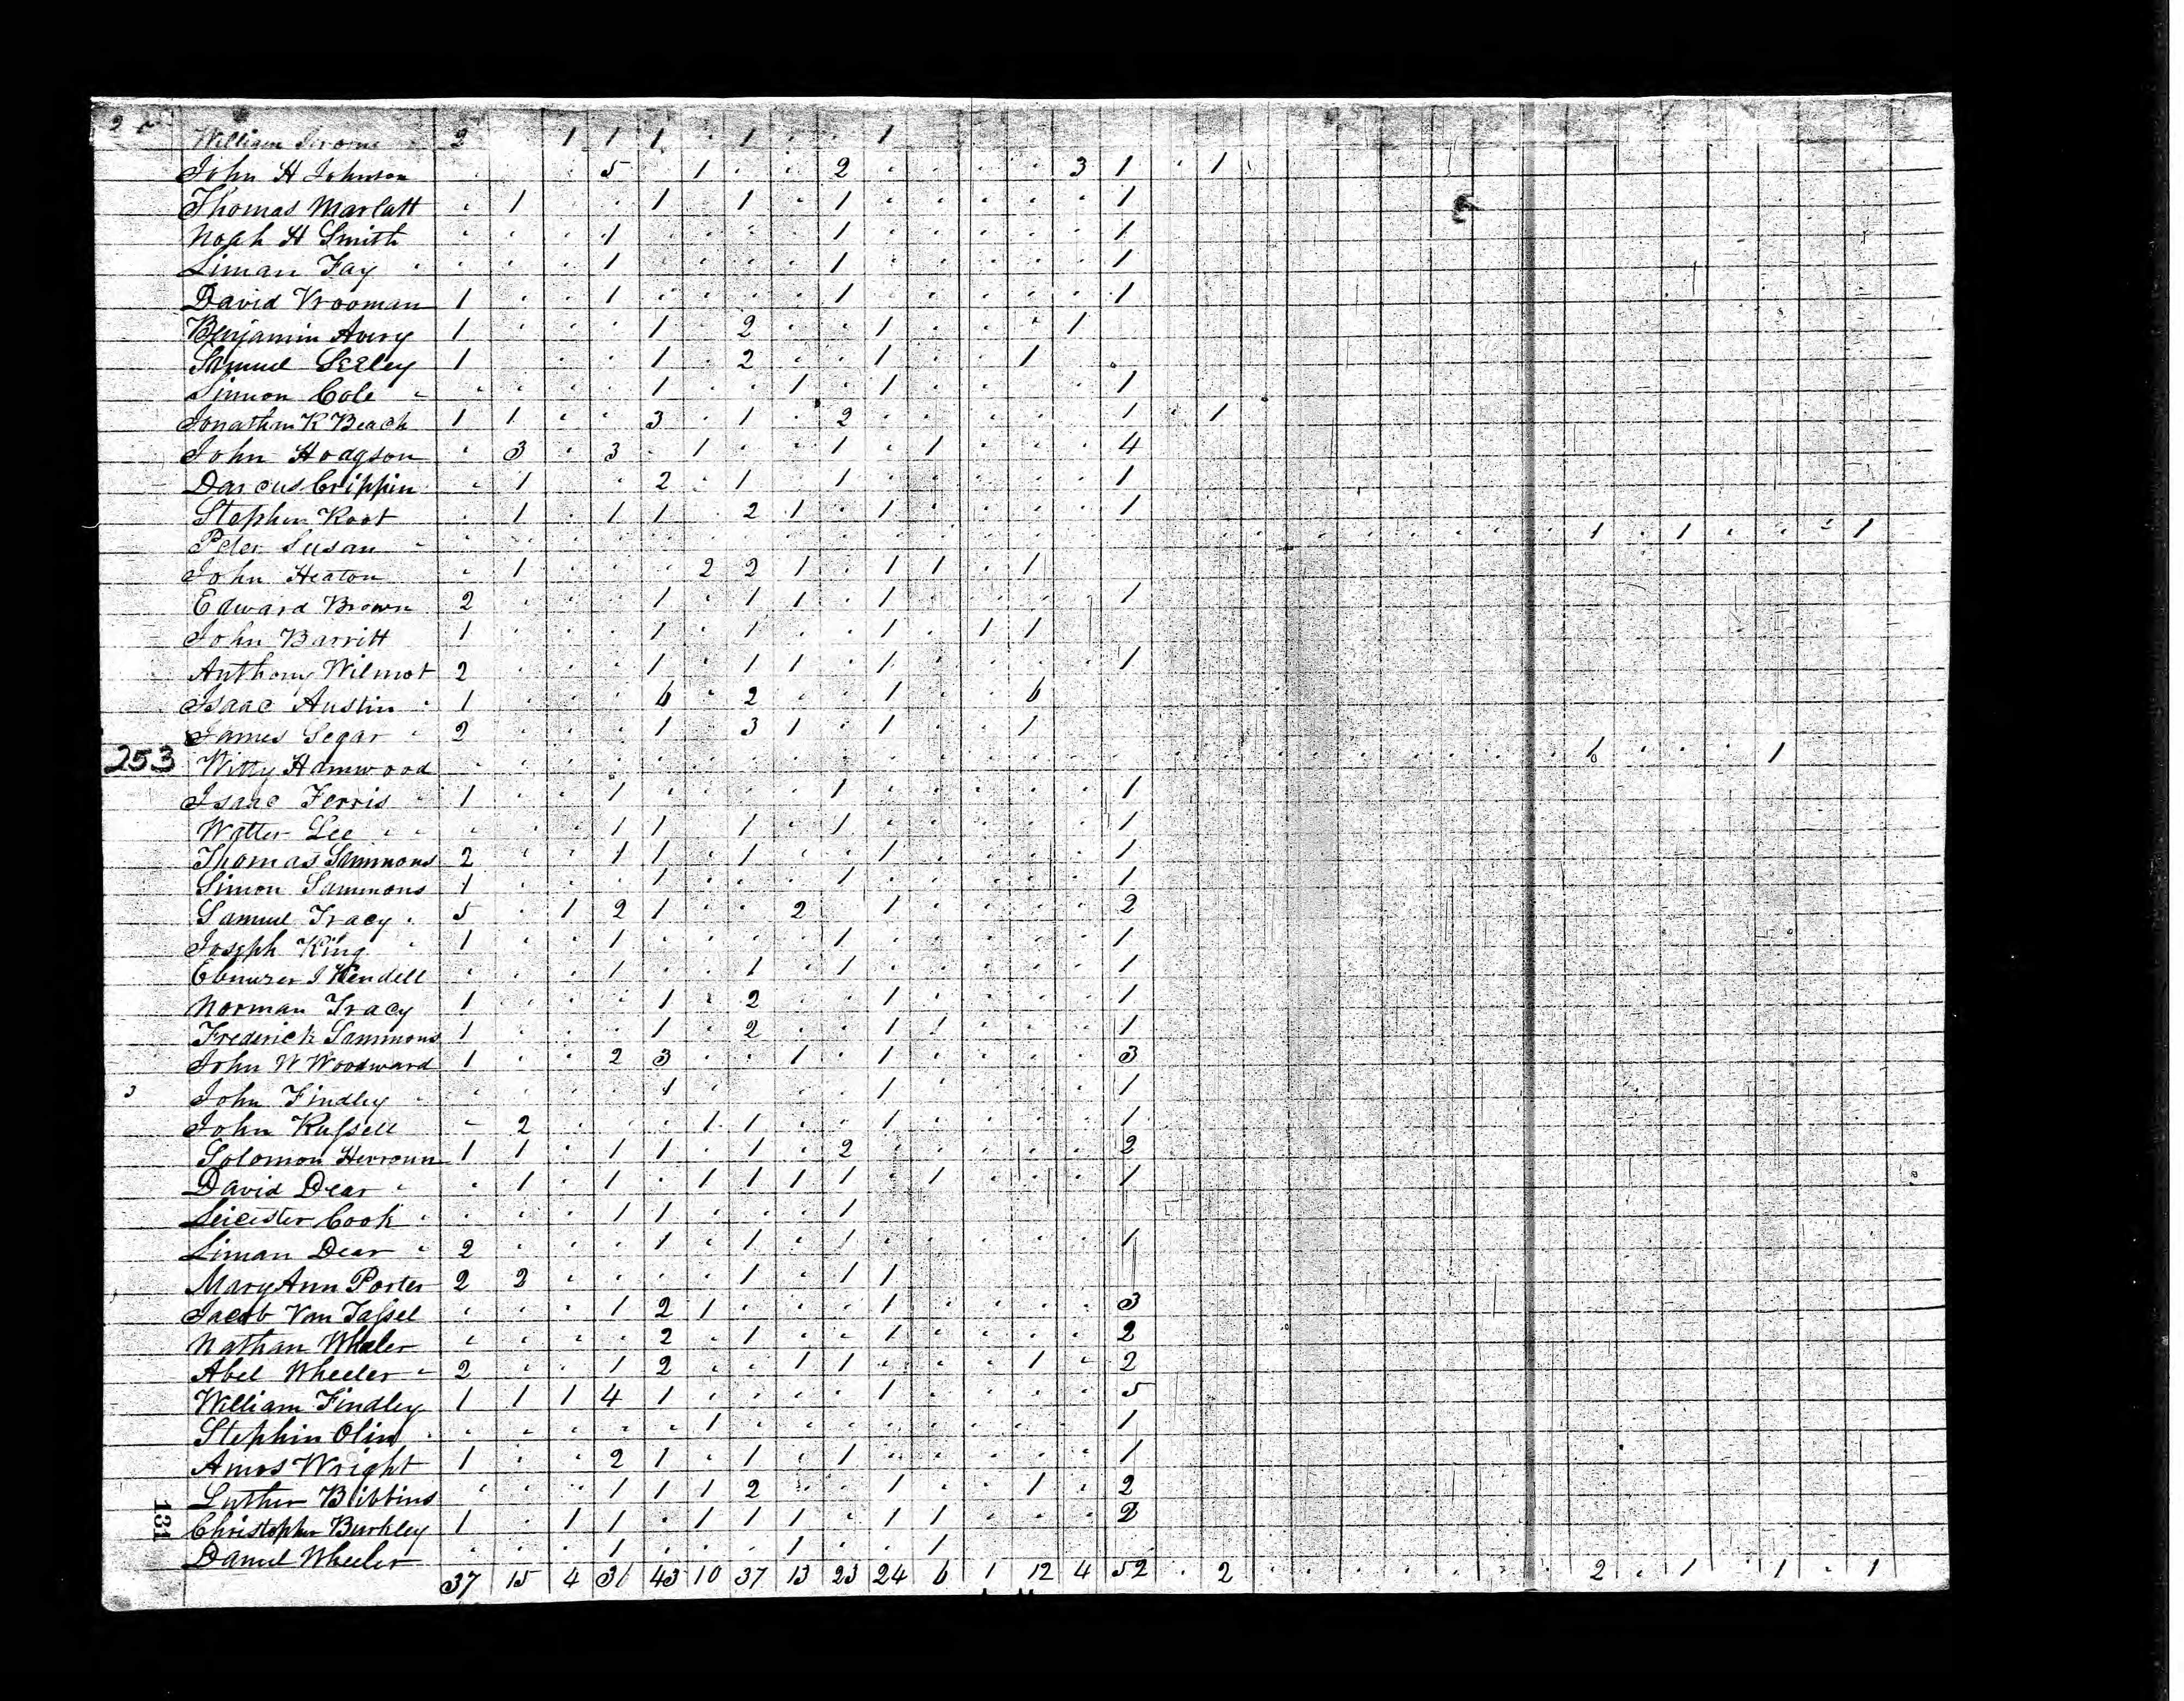 William Jerome 2 1 1 1 . 1 . . 1
John H Johnson . . . 5 . 1 . . 2 . . . . 3 1 . 1
Thomas Marlatt . 1 . . 1 . 1 . 1 . . . . . 1
Noah H Smith . . . 1 . . . . 1 . . . . . 1
Liman Fay . . . 1 . . . . 1 . . . . . 1
David Vrooman 1 . . 1 . . . . 1 . . . . . 1
Benjamin Avery 1 . . . 1 . 2 . . 1 . . . 1
Samuel Seeley 1 . . . 1 . 2 . . 1 . . 1 .
Simeon Cole . . . . 1 . . 1 . 1 . . . . 1
Jonathan K Beach 1 1 . . 3 . 1 . 2 . . . . 1 . 1
John Hodgson . 3 . 3 . 1 . . 1 . 1 . . . 4
Darcus Crippin . 1 . . 2 . 1 . 1 . . . . . 1
Stephen Root . 1 . 1 1 . 2 1 . 1 . . . . 1
Peter Susan . . . . . . . . . . . . . . . . 1 . 1 . . . 1
John Heaton . 1 . . . 2 2 1 . 1 1 . 1
Edward Brown 2 . . . 1 . 1 1 . 1 . . . . 1
John Barritt 1 . . . 1 . 1 . . 1 . 1 1
Anthony Wilmot 2 . . . 1 . 1 1 . 1 . . . . 1
Isaac Austin 1 . . . 6 . 2 . . 1 . . 6
James Segar 2 . . . 1 . 3 1 . 1 . . 1
253 Witty Hamwood . . . . . . . . . . . . . . . . 6 . . . 1
Isaac Ferris 1 . . 1 . . . . 1 . . . . . 1
Walter Lee . . . 1 1 . 1 . 1 . . . . . 1
Thomas Sammons 2 . . 1 1 . 1 . . 1 . . . . 1
Simon Sammons 1 . . . 1 . . . 1 . . . . . 1
Samuel Tracy 5 . 1 2 1 . . 2 1 . . . . 2
Joseph King 1 . . 1 . . . . 1 . . . . . 1
Ebenezer J Kendell . . . 1 . . 1 . 1 . . . . . 1
Norman Tracy 1 . . . 1 . 2 . . 1 . . . . 1
Frederick Sammons 1 . . . 1 . 2 . . 1 1 . . . 1
John W Woodward 1 . . 2 3 . . 1 . 1 . . . . 3
John Findley . . . . 1 . . . . 1 . . . . 1
John Russell . 2 . . . 1 1 . . 1 . . . . 1
Solomon Herroun 1 1 . 1 1 . 1 . 2 . . . . . 2
David Dear . 1 . 1 . 1 1 1 1 . 1 . . . 1
Leicester Cook . . . 1 1 . . . 1
Liman Dear 2 . . . 1 . 1 . 1 . . . . . 1
Mary Ann Porter 2 2 . . . . 1 . 1 1
Jacob Van Tassel . . . 1 2 1 . . . 1 . . . . 3
Nathan Wheler . . . . 2 . 1 . . 1 . . . . 2
Abel Wheeler 2 . . 1 2 . . 1 1 . . . 1 . 2
William Findley 1 1 1 4 1 . . . . 1 . . . . 5
Stephin Olin . . . . . 1 . . . . . . . . 1
Amos Wright 1 . . 2 1 . 1 . 1 . . . . . 1
Luther Bibbins . . . 1 1 1 2 . . 1 . . 1 . 2
131 Christopher Burkley 1 . 1 1 . 1 1 1 . 1 1 . . . 2
Daniel Wheeler . . . 1 . . . 1 . . 1
37 15 4 31 43 10 37 13 23 24 6 1 12 4 52 . 2 . . . . . . . 2 . 1 . 1 . 1